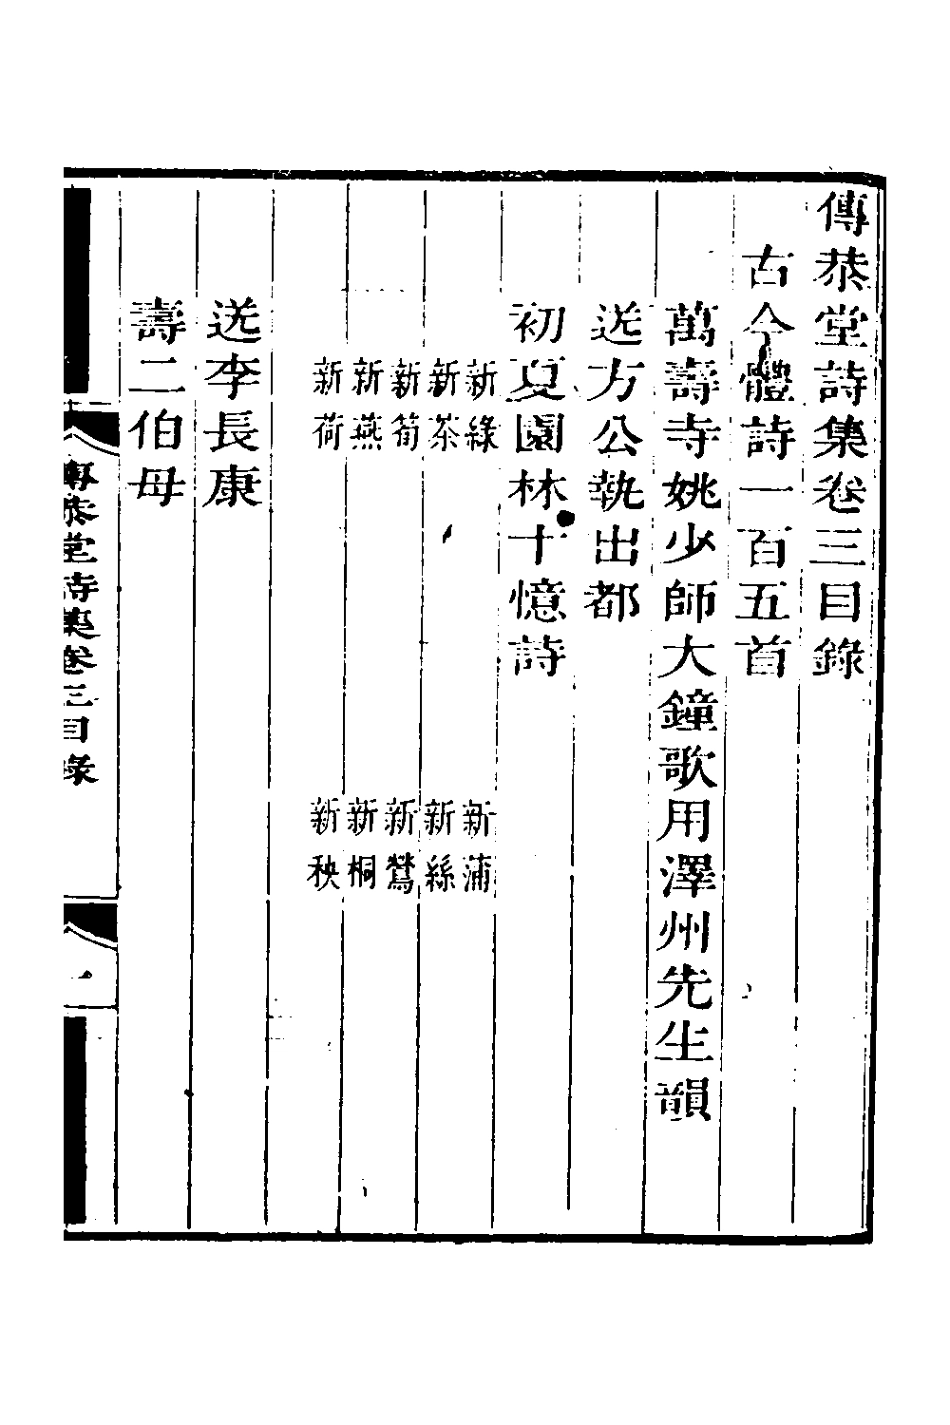 傳恭堂詩集卷三目錄
古今體詩一百五首
萬壽寺姚少師大鐘歌用澤州先生韻
送方公執出都
初夏園林十憶詩
新綠
新蒲
新茶
新絲
新筍
新鶯
新燕
新桐
新荷
新秧
送李長康
壽二伯母
傳恭堂詩集卷三目錄
一